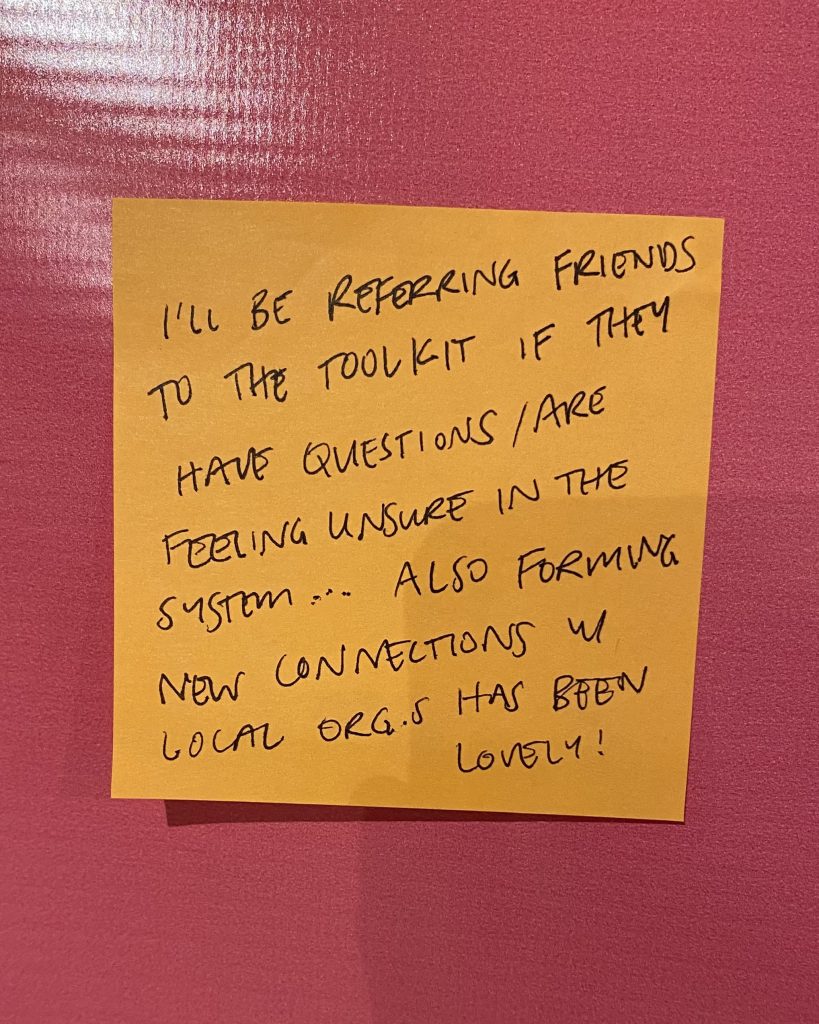 I'LL BE REFERRING FRIENDS
TO THE TOOLKIT IF THEY
HAVE QUESTIONS / ARE
FEELING UNSURE IN THE
SYSTEM... ALSO FORMING
NEW CONNECTIONS W/
LOCAL ORG.S HAS BEEN
LOVELY!